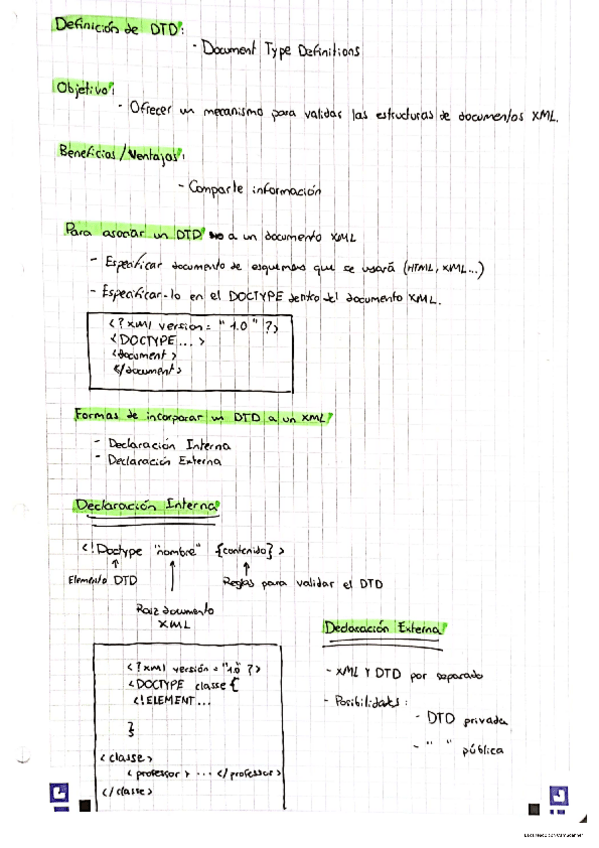 Definición de DTD:
- Document Type Definitions
Objetivo:
- Ofrecer un mecanismo para validar las estructuras de documentos XML.
Beneficios/Ventajas:
- Comparte información
Para asociar un DTD a un documento XML
- Especificar documento de esquemas que se usará (HTML, XML...)
- Especificar-lo en el DOCTYPE dentro del documento XML.
<?xml version = "1.0" ?>
<DOCTYPE ... >
<document>
</document>
Formas de incorporar un DTD a un XML
- Declaración Interna
- Declaración Externa
Declaración Interna
<!Doctype "nombre" {contenido}>
Elemento DTD
Reglas para validar el DTD
Raiz documento
XML
<?xml versión = "1.0" ?>
<DOCTYPE classe {
<!ELEMENT ...
}
<classe>
<professor> ... </professor>
</classe>
Declaración Externa
- XML Y DTD por separado
- Posibilidades:
- DTD privada
- " " pública